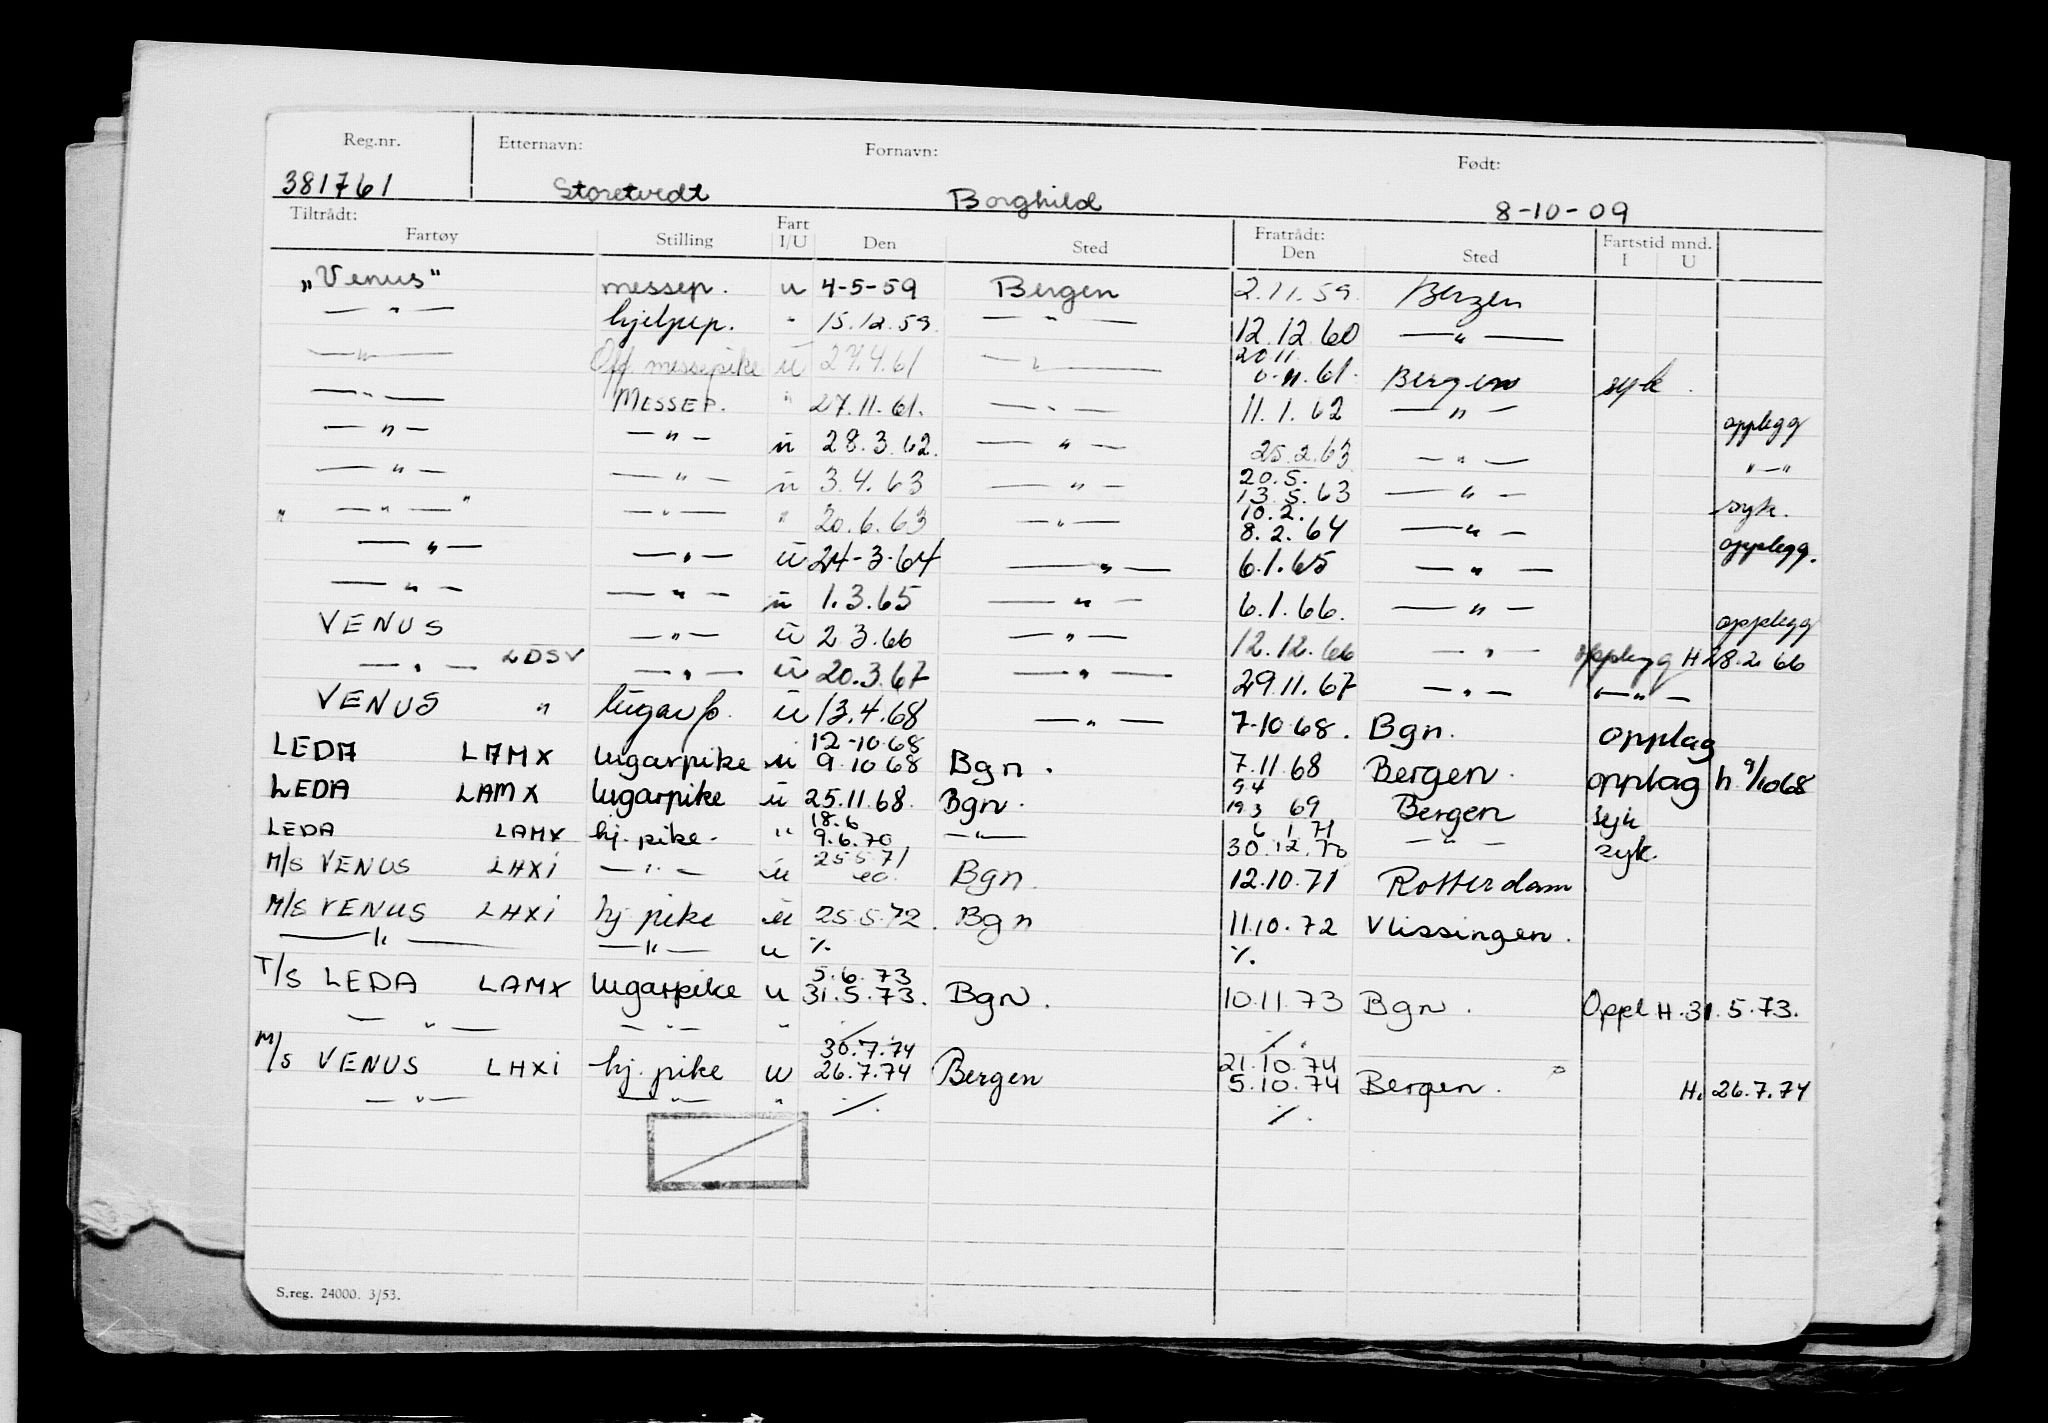 Reg.nr. Etternavn: Fornavn: Født:
381761 Storetvedt Borghild 8-10-09
Tiltrådt: Fartøy Stilling Fart I/U Den Sted Fratrådt: Den Sted Fartstid mnd. I U
„Venus“ messep. u 4-5-59 Bergen 2.11.59. Bergen
—"— hjelpep. " 15.12.59. —"— 12.12.60 —"—
—"— Off. messepike u 27.4.61 —"— 20.11. 11.61. Bergen syk.
—"— MESSEP. " 27.11.61. —"— 11.1.62 —"— opplegg
—"— —"— u 28.3.62. —"— 25.2.63 —"— "—"
—"— —"— u 3.4.63 —"— 20.5. 13.5.63 —"— syk.
" —"—" —"— " 20.6.63 —"— 10.2. 8.2.64 —"— opplegg.
—"— —"— u 24-3-64 —"— 6.1.65 —"—
—"— —"— u 1.3.65 —"— 6.1.66. —"— opplegg
VENUS —"— u 2.3.66 —"— 12.12.66 —"— opplegg H 28.2.66
—"— LDSV —"— u 20.3.67 —"— 29.11.67 —"— —"—
VENUS " lugarp. u 13.4.68 —"— 7-10-68. Bgn. opplag
LEDA LAMX lugarpike u 12-10-68 9.10 68 Bgn. 7.11 68 Bergen. opplag h 9/1068
LEDA LAMX lugarpike u 25.11.68. Bgn. 9 4 19 3 69 Bergen syk
LEDA LAMX hj. pike. " 18.6 9.6.70 —"— 6 1 71 30.12.70 —"— syk.
M/S VENUS LHXI —"— u 25 5 71 Bgn. 12.10.71 Rotterdam
M/S VENUS LHXI hj pike u 25.5.72. Bgn 11.10.72 Vlissingen.
—"— —"— u ⁒ ⁒
T/S LEDA LAMX lugarpike u 5.6.73 31.5.73. Bgn. 10.11.73 Bgn. Oppl H.31.5.73.
—"— —"— " ⁒ ⁒
M/S VENUS LHXI hj. pike u 30.7.74 26.7.74 Bergen 21.10.74 5.10.74 Bergen. H. 26.7.74
—"— —"— " ⁒ ⁒
S.reg. 24000. 3/53.